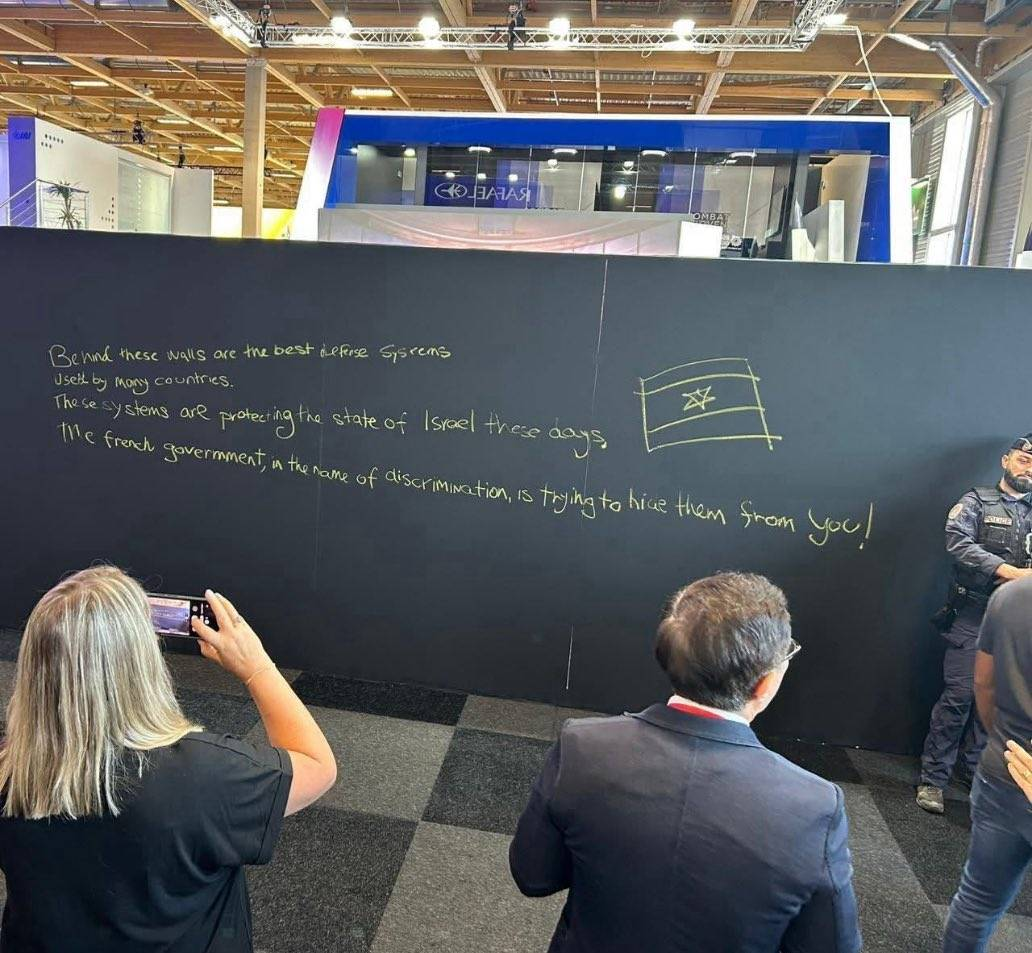 RAFAEL
OMBAT
Behind these walls are the best defense systems
Used by many countries.
These systems are protecting the state of Israel these days.
The french government, in the name of discrimination, is trying to hide them from you!
POLICE